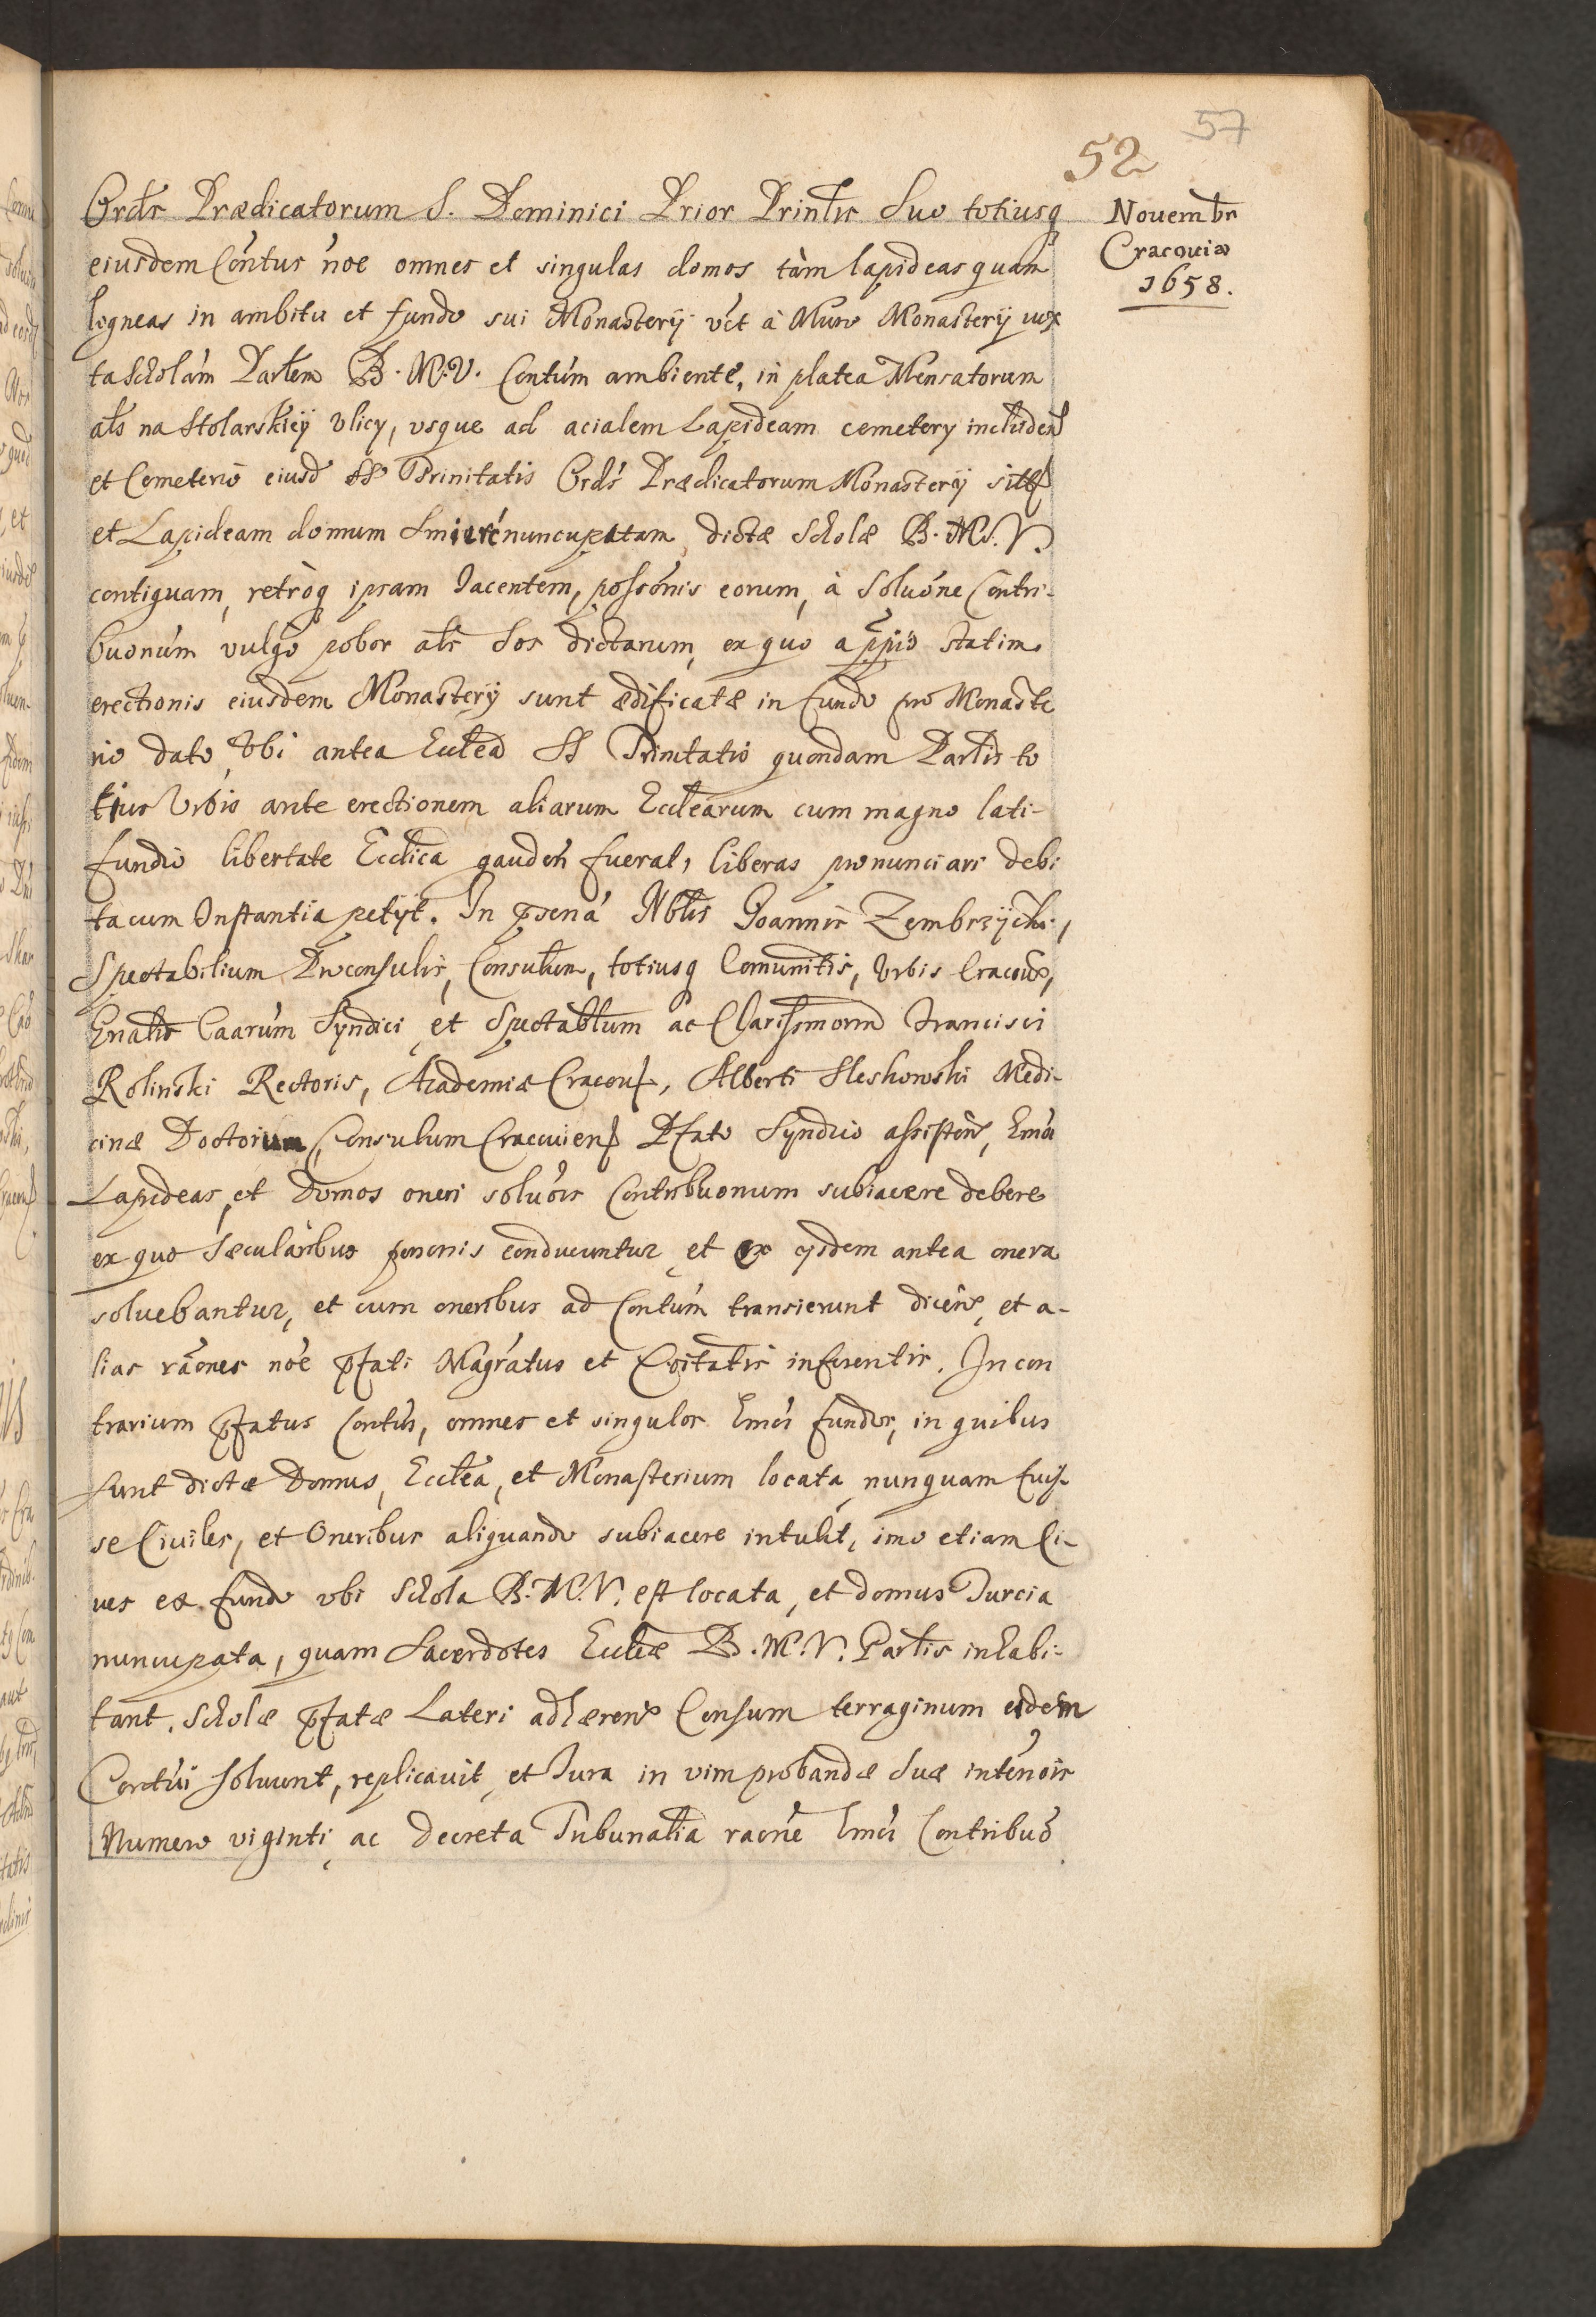 57
52
Novembr
Cracoviæ
1658.
Ordĩs Prædicatorum S. Dominici Prior Printĩs Suo totiusq
eiusdem Contus noe omnes et singulas domos tàm lapideas quàm
ligneas in ambitu et fundo sui Monasterÿ vct à Muro Monasterÿ iux
ta Scholam Partem B. M. V. Contum ambiente, in platea Mensatorum
als na Stolarskieÿ Vlicy, vsque ad acialem Lapideam cemetery includen
et Cemeterio eiusd SS Trinitatis Ords Prædicatorum Monasterÿ sit
et Lapideam domum nuncupatam, dictæ Scholæ B. M. V.
contiguam, retroq ipsam Iacentem, possonis eorum, à Soluone Contri-
buonum vulgo pobor als Sos dictarum, ex quo a ppio statim
erectionis eiusdem Monasterÿ sunt ædificatæ in fundo pro Monaste
rio dato, Vbi antea Ecclea SS Trinitatis quondam Partis to
tius Vrbis ante erectionem aliarum Ecclearum cum magno lati-
fundio libertate Ecclica gauden fuerat, liberas pronunciari debi
ta cum Instantia petÿt. In psena Nblis Joannis Zembrzÿcki,
Spectabilium Proconsulis, Consulum, totiusq Comunitis, Vrbis Cracov,
Gnalis Caarum Syndici, et Spectablum ac Clarissimorum Francisci
Rolinski Rectoris, Academiæ Cracov, Alberti Sleshowshi Medi-
cinæ Doctorum, Consulum Cracovien Pfato Syndico assisten, Emoi
Lapideas, et Domos oneri soluois Contribuonum subiacere debere
ex quo Sæcularibus personis conducuntur, et ex ijsdem antea onera
soluebantur, et cum oneribus ad Contum transierunt dicen, et a-
lias raones noe pfati Magratus et Coitatis inferentis. In con
trarium pfatus Contus, omnes et singulos fundos, in quibus
sunt dictæ Domus, Ecclea, et Monasterium locata, nunquam fuis-
se Civiles, et Oneribus aliquando subiacere intulit, imo etiam Ci-
ves ex fundo vbi Schola B. M. V. est locata, et domus Turcia
nuncupata, quam Sacerdotes Eccleæ B. M. V. Partis inhabi-
tant, Scholæ pfatæ Lateri adhæren Censum terraginum eidem
Contui soluunt, replicavit, et Iura in vim probandæ suæ intenois
Numero viginti, ac decreta Tribunalia raone Contribuo